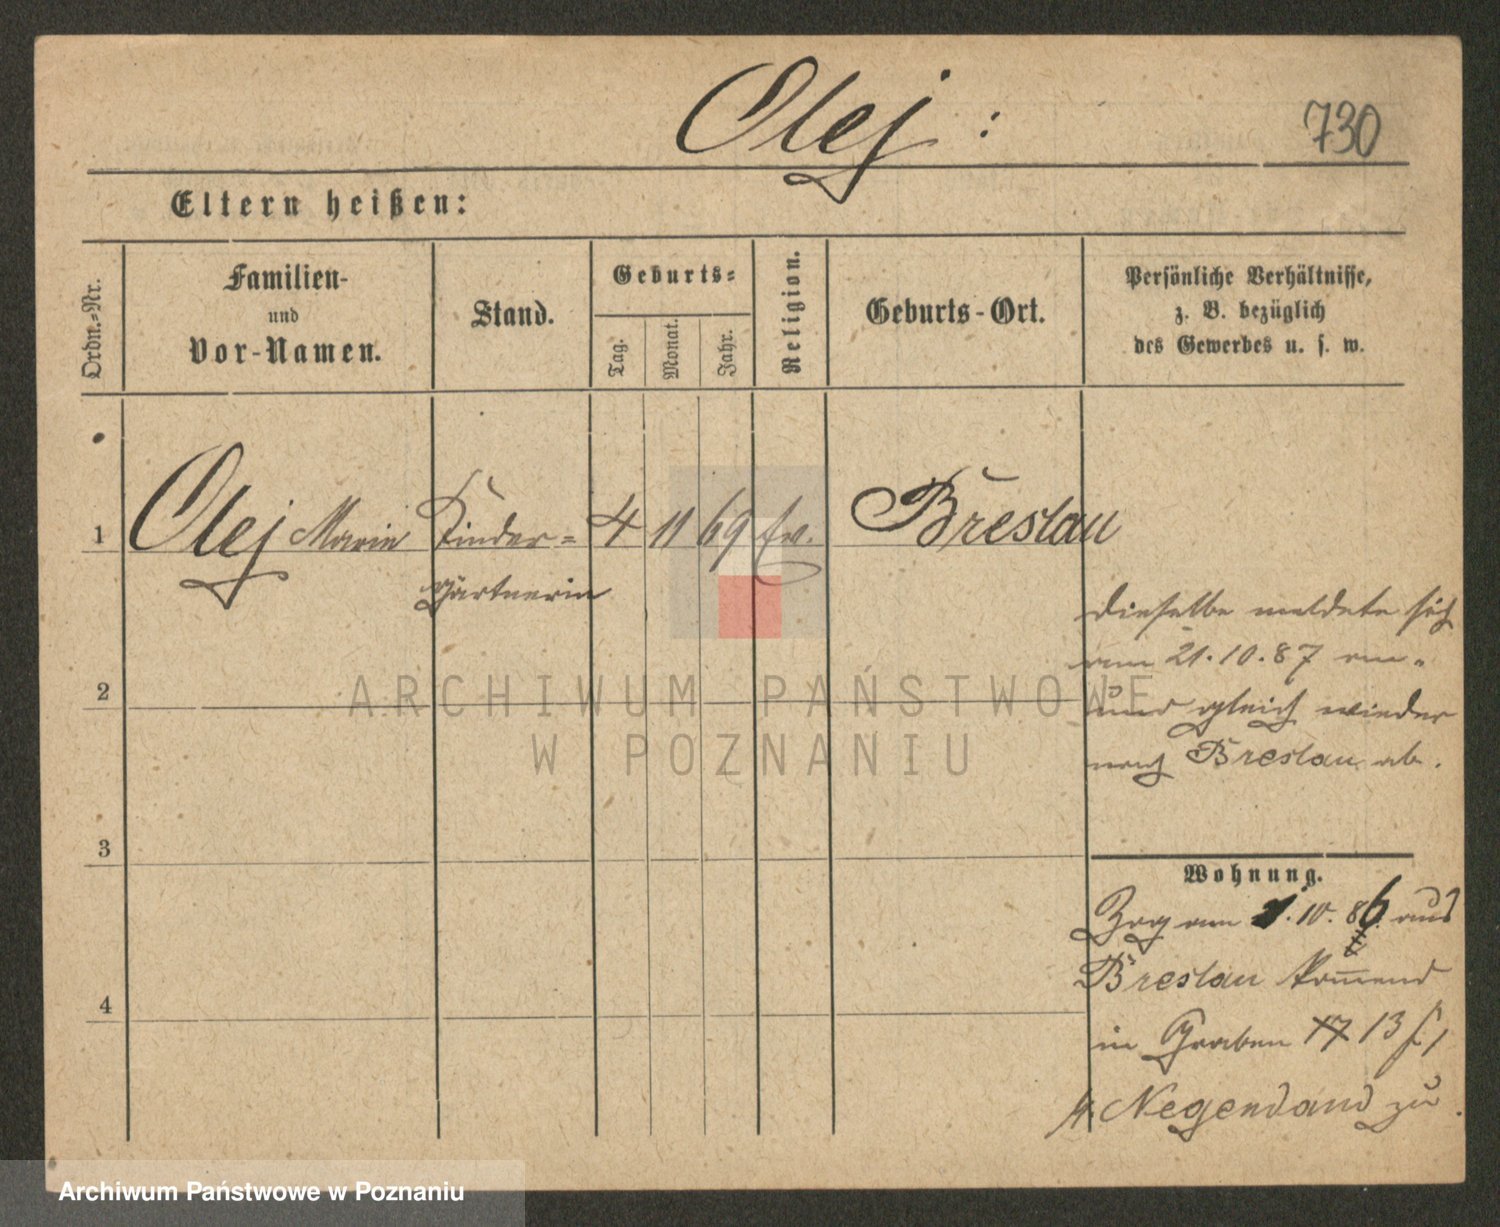 Olej :
730
Eltern heißen:
Ordn.-Nr.
Familien-
und
Vor-Namen.
Stand.
Geburts-
Tag.
Monat.
Jahr.
Religion.
Geburts-Ort.
Persönliche Verhältnisse,
z. B. bezüglich
des Gewerbes u. s. w.
1 Olej Marie Kinder= 4 11 69 Ev. Breslau
gärtnerin
dieselbe meldete sich
am 21.10.87 an=
und gleich wieder
nach Breslau ab.
2
3
4
Wohnung.
Zog am 1.10.86 aus
Breslau kom̅end
in Graben 17 13
Negendand zu.
ARCHIWUM PAŃSTWOWE
W POZNANIU
Archiwum Państwowe w Poznaniu